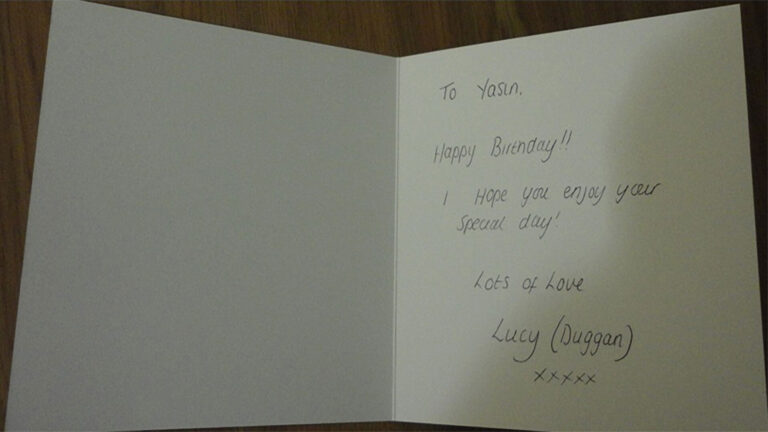 To Yasin.
Happy Birthday!!
I Hope you enjoy your
Special day!
Lots of Love
Lucy (Duggan)
xxxxx